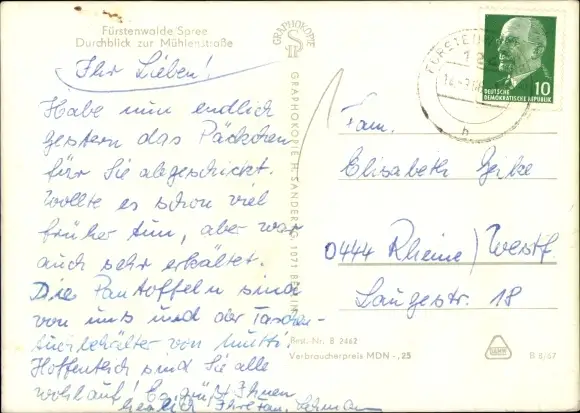 Fürstenwalde/Spree
Durchblick zur Mühlenstraße
Ihr Lieben!
Habe nun endlich
gestern das Päckchen
für Sie abgeschickt.
Wollte es schon viel
früher tun, aber war
auch sehr erkältet.
Die Pantoffeln sind
von uns und der Taschen-
tuchbehälter von Mutti.
Hoffentlich sind Sie alle
wohlauf! Es grüßt Ihnen
herzlich Ihre Fam.
GRAPHOKOPIE
GRAPHOKOPIE H. SANDER KG, 1071 BERLIN
Best. Nr. B 2462
Verbraucherpreis MDN -,25
FÜRSTENW
10
DEUTSCHE
DEMOKRATISCHE REPUBLIK
b
Fam.
Elisabeth
0444 Rheine/Westf.
Langestr. 18
B 8/67